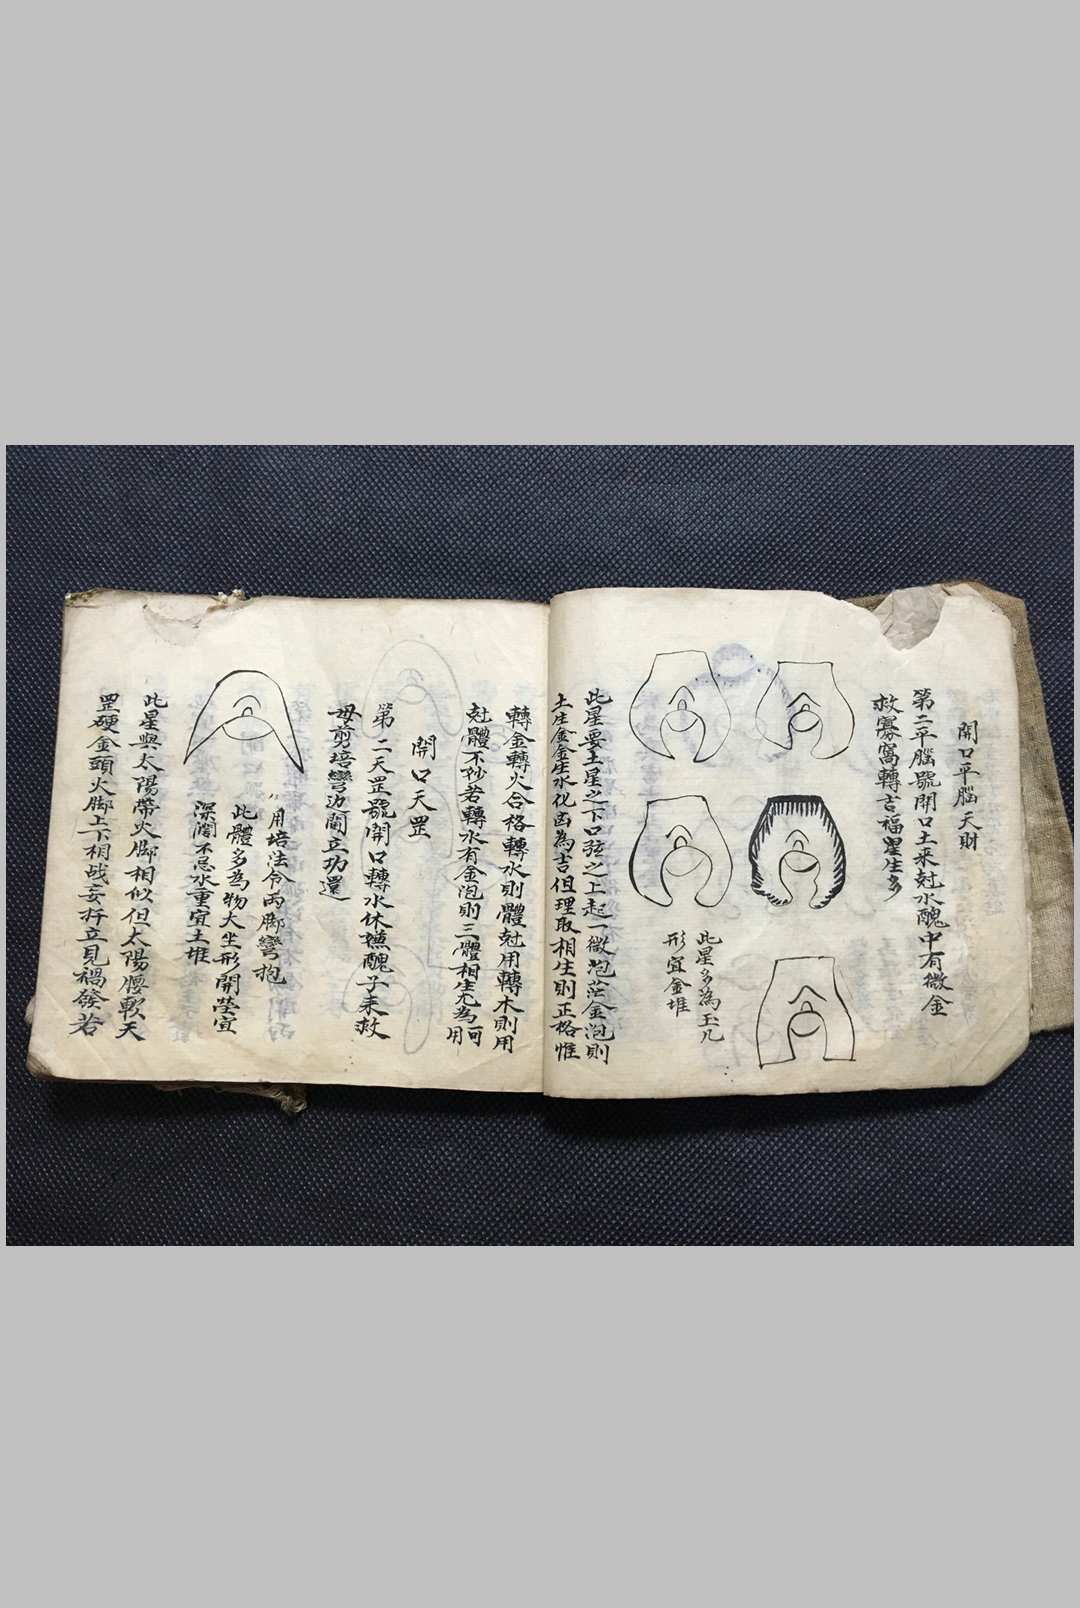 開口平腦天財
第二平腦號開口土来尅水醜中有微金
救寡窩轉吉福星生多
此星多為玉几
形宜金堆
此星要土星之下口弦之上起一微泡茫金泡則
土生金金生水化凶為吉但理取相生則正格惟
轉金轉火合格轉水則體尅用轉木則用
尅體不妙若轉水有金泡則三體相生尤為可
用
開口天罡
第二天罡號開口轉水休撫醜子来救
母剪培彎边間立功還
用培法令两脚彎抱
此體多為物大坐形開塋宜
深闊不忌水重宜土堆
此星與太陽帶火脚相似但太陽腰軟天
罡硬金頭火脚上下相战妄扦立見禍發若